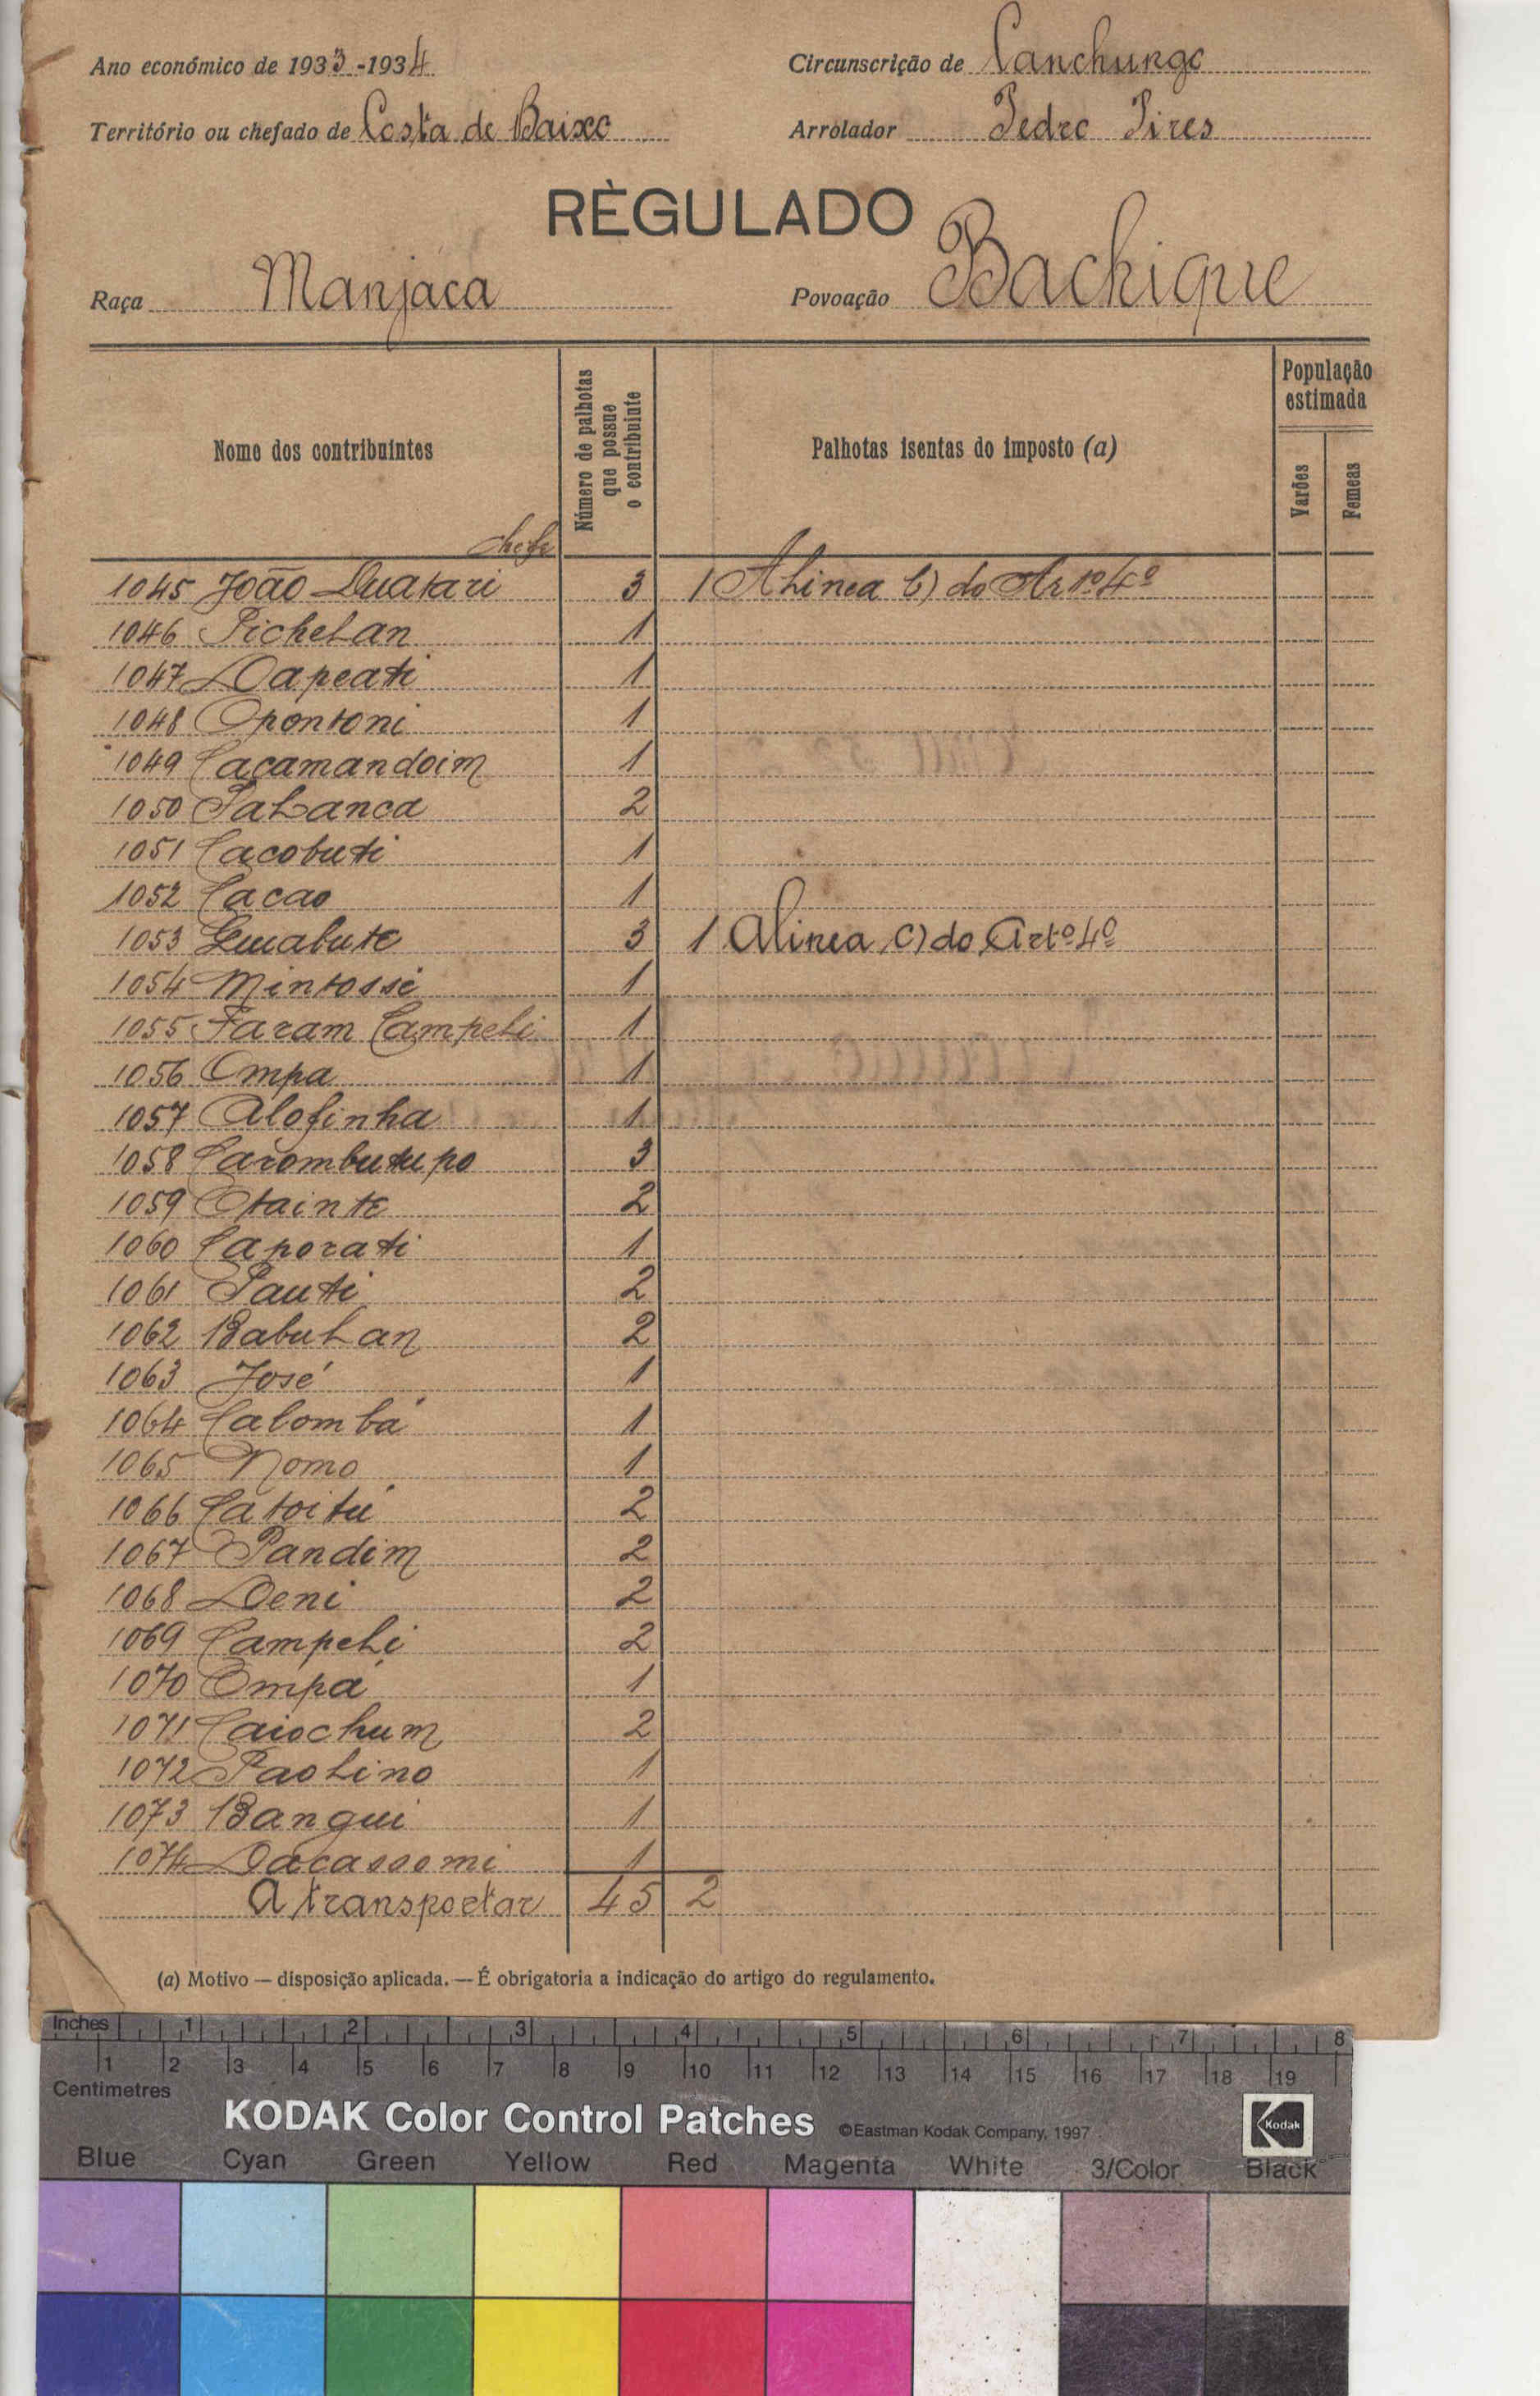 Ano económico de 1933-1934 Circunscrição de Canchungo
Território ou chefado de Costa de Baixo Arrolador Pedro Pires
RÈGULADO
Raça Manjaca Povoação Bachique
Nome dos contribuintes
Número de palhotas que possue o contribuinte
Palhotas isentas do imposto (a)
População estimada
Varões
Femeas
chefe
1045 João Duatari 3 1 Alinea b) do Arto 4º
1046 Pichelan 1
1047 Dapeati 1
1048 Opontoni 1
1049 Caçamandoim 1
1050 Palanca 2
1051 Cacobuti 1
1052 Cacao 1
1053 Guabute 3 1 Alinea c) do Artº 4º
1054 Mintossé 1
1055 Faram Campeli 1
1056 Ompa 1
1057 Alofinha 1
1058 Carombutupo 3
1059 Otainte 2
1060 Caporati 1
1061 Pauti 2
1062 Babulan 2
1063 José 1
1064 Calombá 1
1065 Nomo 1
1066 Catoitú 2
1067 Pandim 2
1068 Deni 2
1069 Campeli 2
1070 Ompá 1
1071 Caiochum 2
1072 Paolino 1
1073 Bangui 1
1074 Dacassomi 1
A transportar 45 2
(a) Motivo — disposição aplicada. — É obrigatoria a indicação do artigo do regulamento.
Inches 1 2 3 4 5 6 7 8
1 2 3 4 5 6 7 8 9 10 11 12 13 14 15 16 17 18 19
Centimetres
KODAK Color Control Patches ©Eastman Kodak Company, 1997 Kodak
Blue Cyan Green Yellow Red Magenta White 3/Color Black